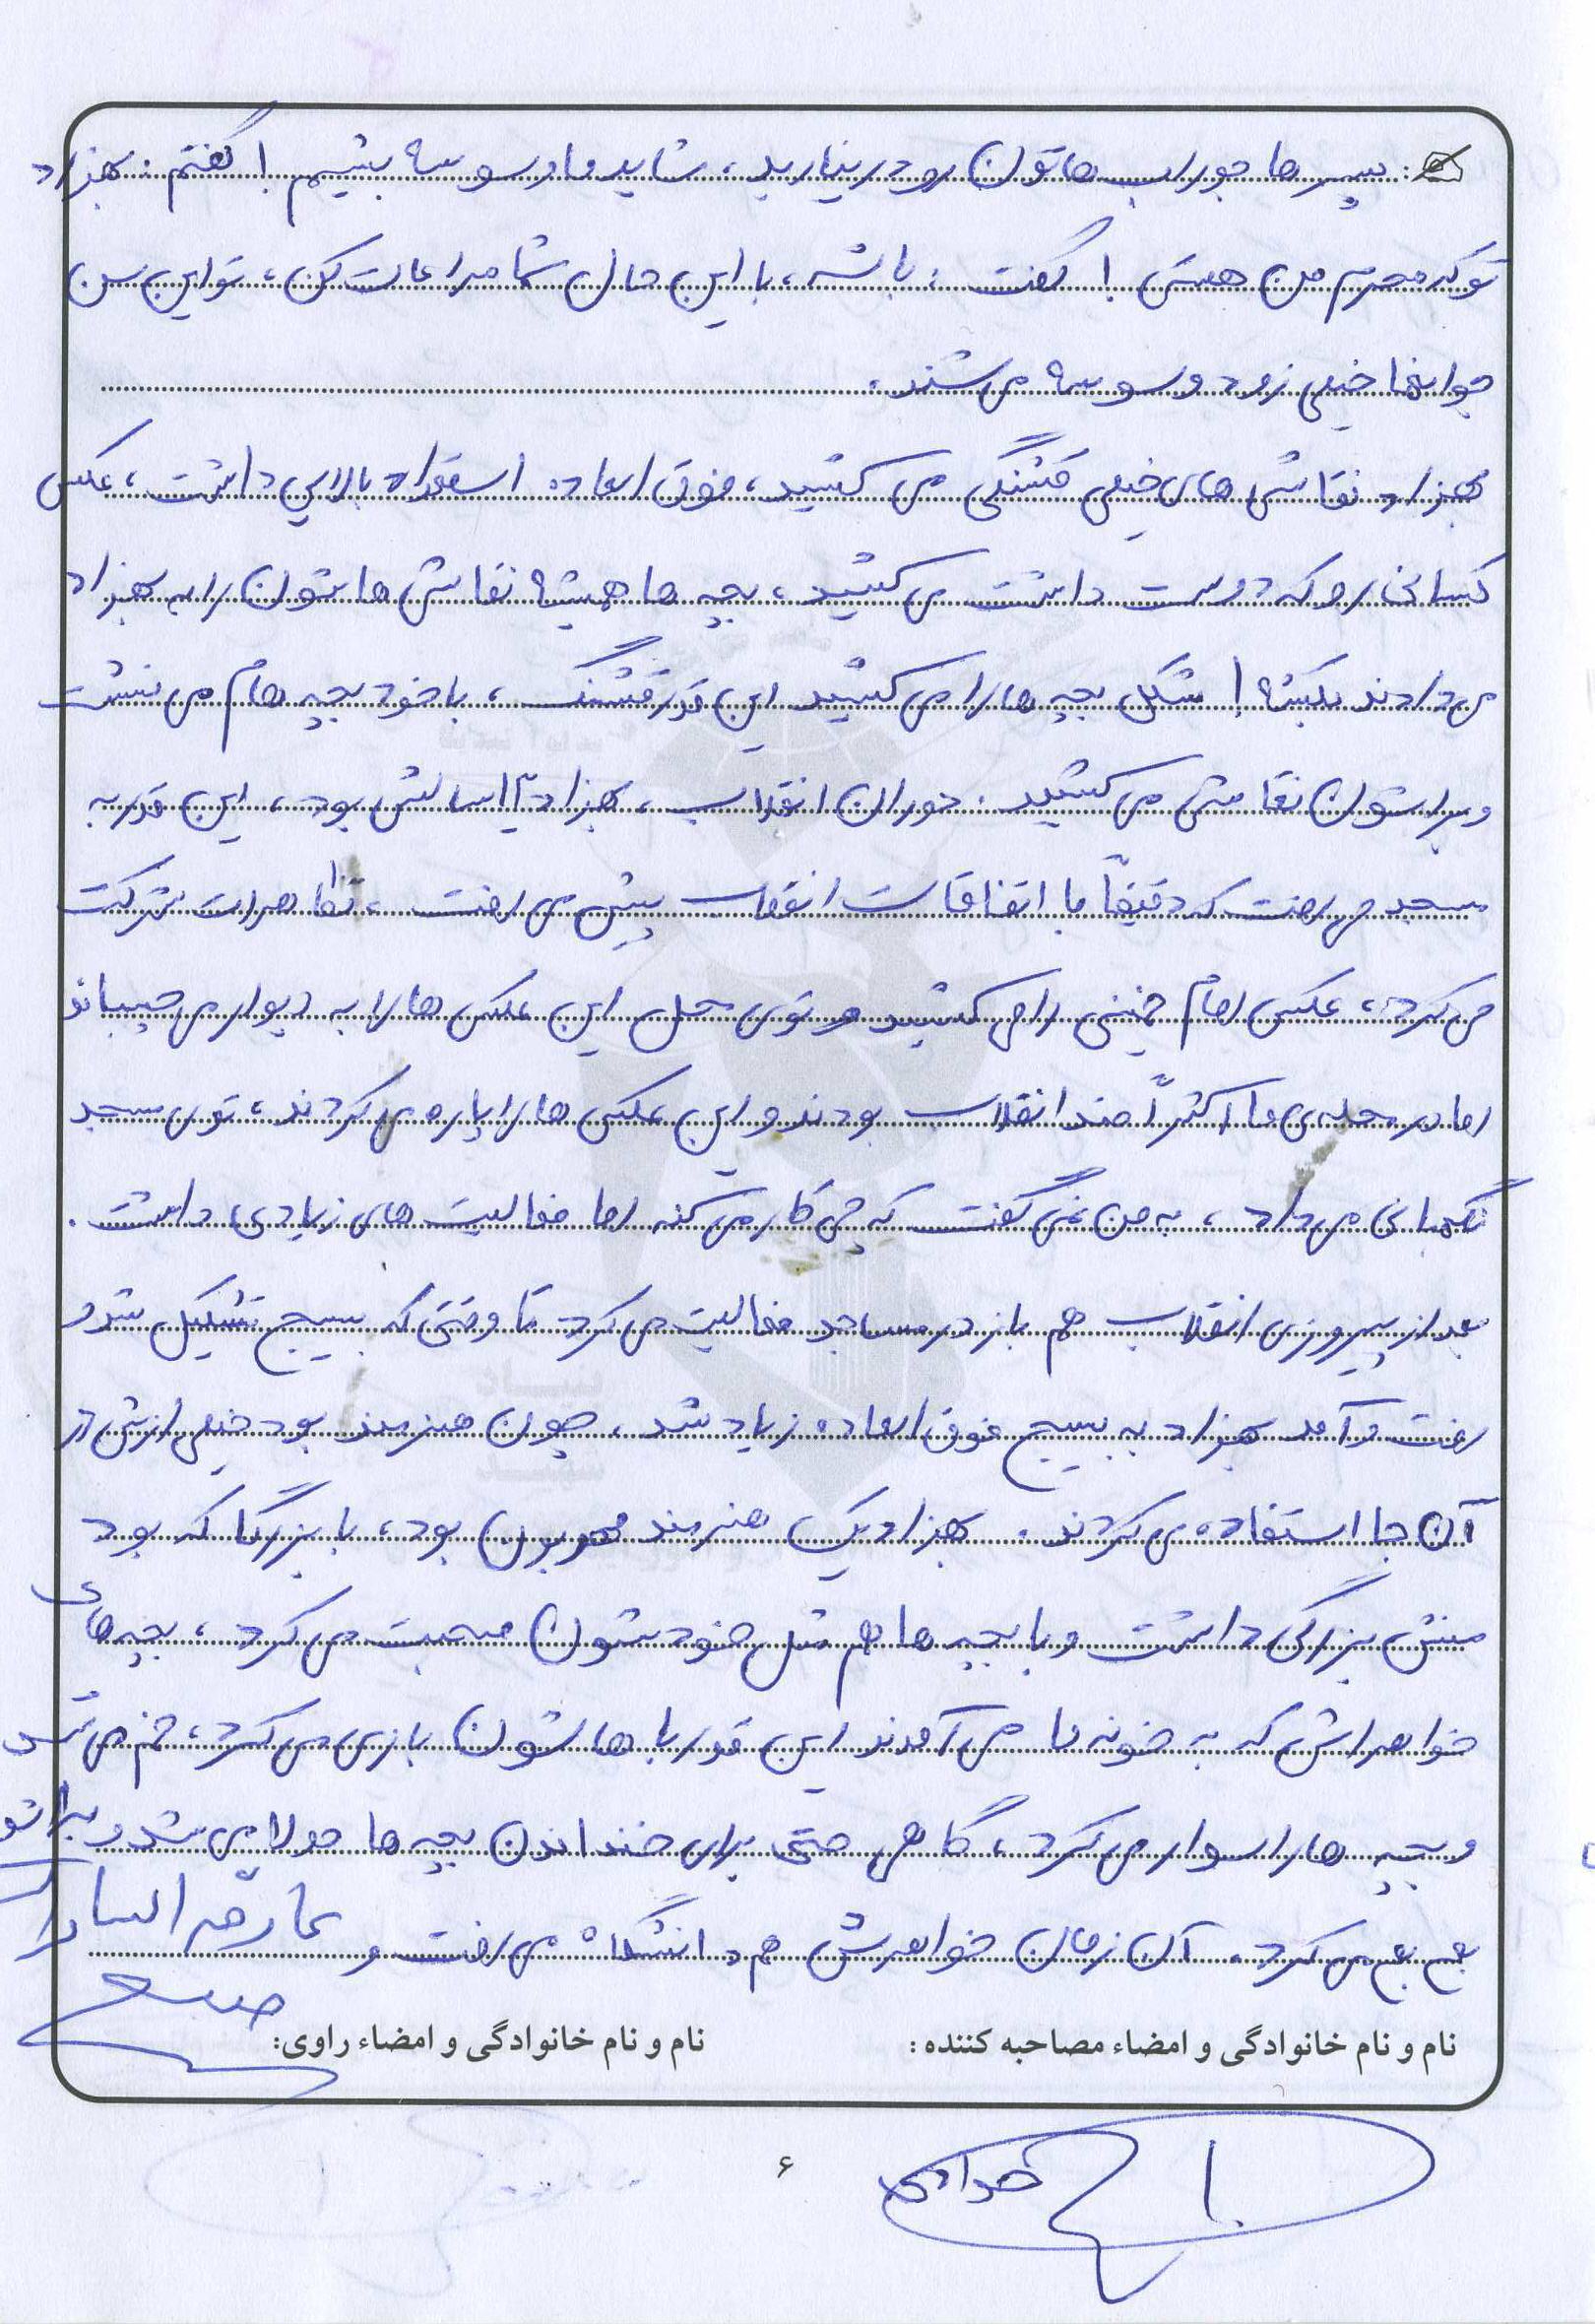 پسرها جوراب هاتون رو در نیارید، شاید ما وسوسه بشیم! گفتم: بهزاد
تو که محرم من هستی! گفت: باشه، با این حال شما مراعات کن، تو این سن
جوانها خیلی زود وسوسه می شند.
بهزاد نقاشی های خیلی قشنگی می کشید، فوق العاده استعداد بالایی داشت، عکس
کسانی رو که دوست داشت می کشید، بچه ها همیشه نقاشی هاشون را به بهزاد
می دادند بکشه! شکل بچه ها را می کشید این قدر قشنگ، با خود بچه هام می نشست
و براشون نقاشی می کشید. دوران انقلاب، بهزاد ۱۳ سالش بود، این قدر به
مسجد می رفت که دقیقاً با اتفاقات انقلاب پیش می رفت، تظاهرات شرکت
می کرد، عکس امام خمینی را می کشید و توی محل این عکس ها را به دیوار می چسباند
اما در محله ی ما اکثراً ضد انقلاب بودند و این عکس ها را پاره می کردند، توی مسجد
نگهبانی می داد، به من نمی گفت که چی کار می کنه اما فعالیت های زیادی داشت.
بعد از پیروزی انقلاب هم باز در مساجد فعالیت می کرد تا وقتی که بسیج تشکیل شد و
رفت و آمد بهزاد به بسیج فوق العاده زیاد شد، چون هنرمند بود خیلی ازش در
آن جا استفاده می کردند. بهزاد یک هنرمند مهربون بود، با بزرگا که بود
منش بزرگی داشت و با بچه ها هم مثل خودشون صحبت می کرد، بچه های
خواهراش که به خونه ما می آمدند این قدر باهاشون بازی می کرد، خم می شد
و بچه ها را سوار می کرد، گاهی حتی برای خنداندن بچه ها دولا می شد و براشو
بع بع می کرد. آن زمان خواهرش هم دانشگاه می رفت و
نام و نام خانوادگی و امضاء مصاحبه کننده:
نام و نام خانوادگی و امضاء راوی:
۶